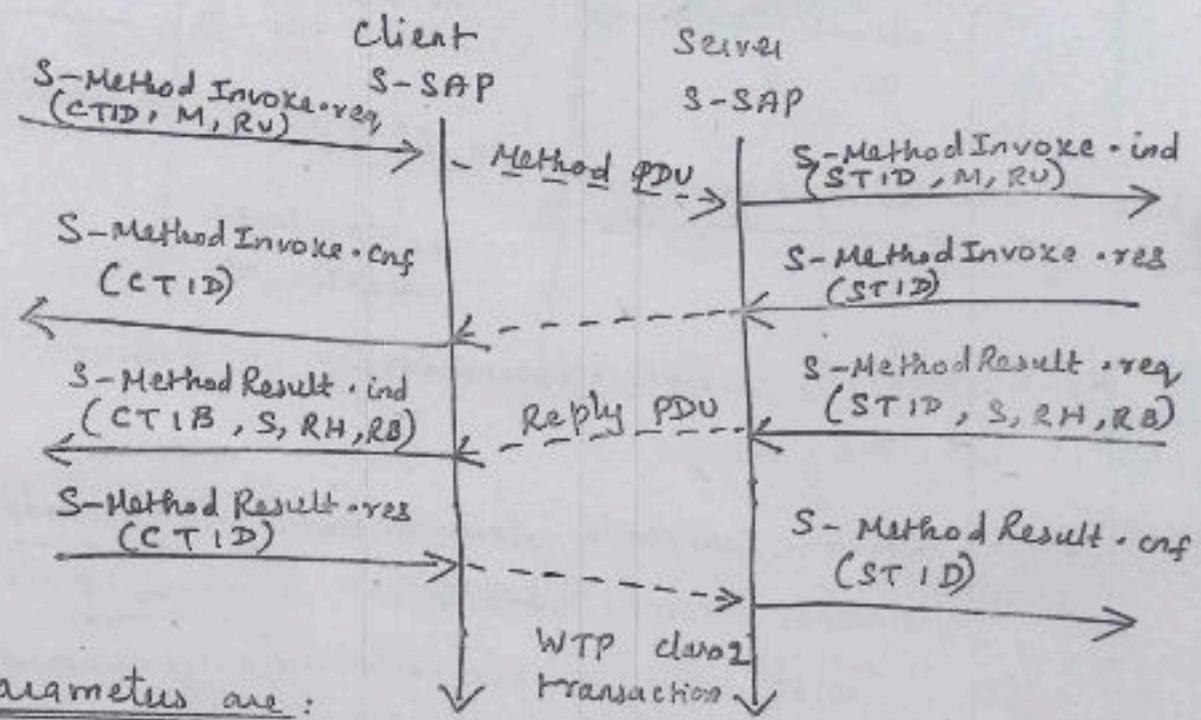 Client
S-SAP
Server
S-SAP
S-Method Invoke.req
(CTID, M, RU)
Method PDU
S-MethodInvoke.ind
(STID, M, RU)
S-MethodInvoke.cnf
(CTID)
S-MethodInvoke.res
(STID)
S-MethodResult.ind
(CTIB, S, RH, RB)
Reply PDU
S-MethodResult.req
(STID, S, RH, RB)
S-Method Result.res
(CTID)
S-Method Result.cnf
(STID)
WTP class2
transaction
arameters are: